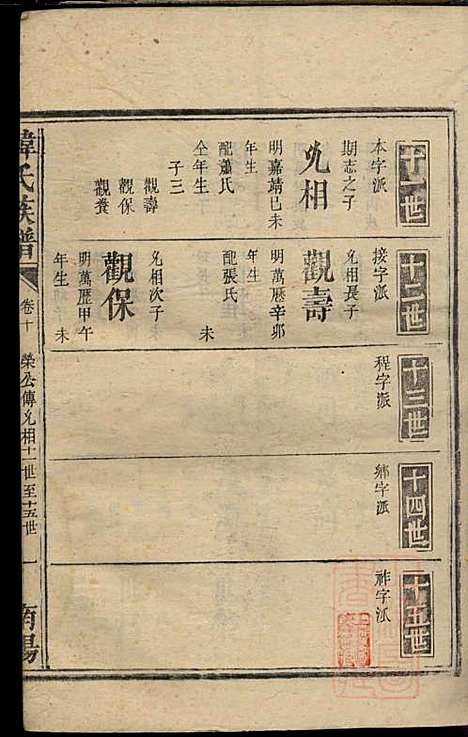 十一世
本字派
期志之子
允相
明嘉靖已未
年生
配蕭氏
仝年生
子三
觀壽
觀保
觀養
十二世
接字派
允相長子
觀壽
明萬曆辛卯
年生
配張氏
未
允相次子
觀保
明萬歷甲午
年生
未
十三世
程字派
十四世
鄉字派
十五世
祚字派
韓氏族譜
卷十
榮公傳允相十一世至十五世
一
南陽